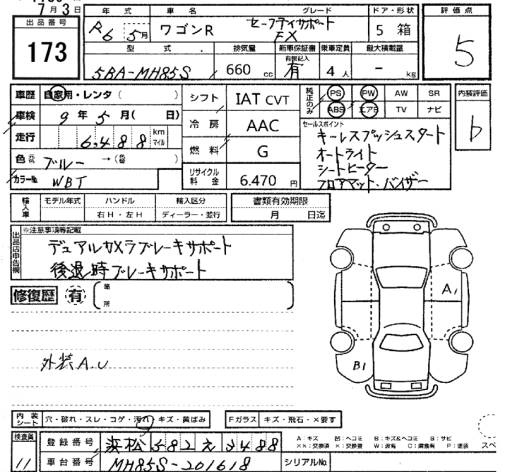 7月3日
出品番号
173
年式 車名 グレード ドア・形状
R6 5月 ワゴンR セーフティサポート
FX 5 箱
型式 排気量 新車保証書 乗車定員 最大積載量
5BA-MH85S 660 cc 有 4人 - kg
評価点
5
車歴 自家用・レンタ シフト IAT CVT
車検 9年5月(日) 冷房 AAC
走行 6,488 km マイル 燃料 G
色 ブルー →( )
カラーNo WBT リサイクル料金 6.470 円
純正のみ PS PW AW SR
ABS エアB TV ナビ
内装評価
b
セールスポイント
キーレスプッシュスタート
オートライト
シートヒーター
フロアマット、バイザー
輸入車 モデル年式 ハンドル 輸入区分 書類有効期限
右H・左H ディーラー・並行 月 日迄
出品店申告欄
※注意事項等記載
デュアルカメラブレーキサポート
後退時ブレーキサポート
修復歴 有 箇所
外装A.U
A1
B1
内装シート 穴・破れ・スレ・コゲ・汚れ・キズ・黄ばみ Fガラス キズ・飛石・×要す
検査員
11
登録番号 浜松 582 え 3488
車台番号 MH85S-201618 シリアルNo
A:キズ U:ヘコミ B:キズ&ヘコミ S:サビ